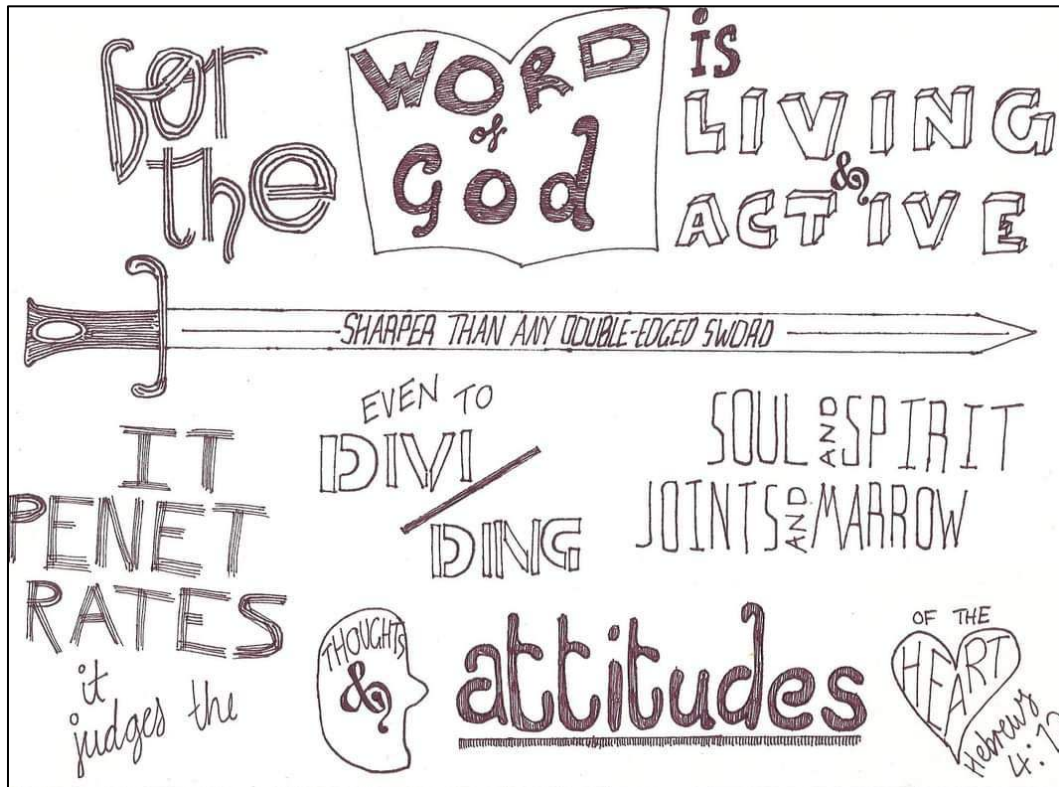 for
the
WORD
of
God
is
LIVING
&
ACTIVE
SHARPER THAN ANY DOUBLE-EDGED SWORD
IT
PENET
RATES
EVEN TO
DIVI
DING
SOUL AND SPIRIT
JOINTS AND MARROW
it
judges the
THOUGHTS
&
attitudes
OF THE
HEART
Hebrews
4:12